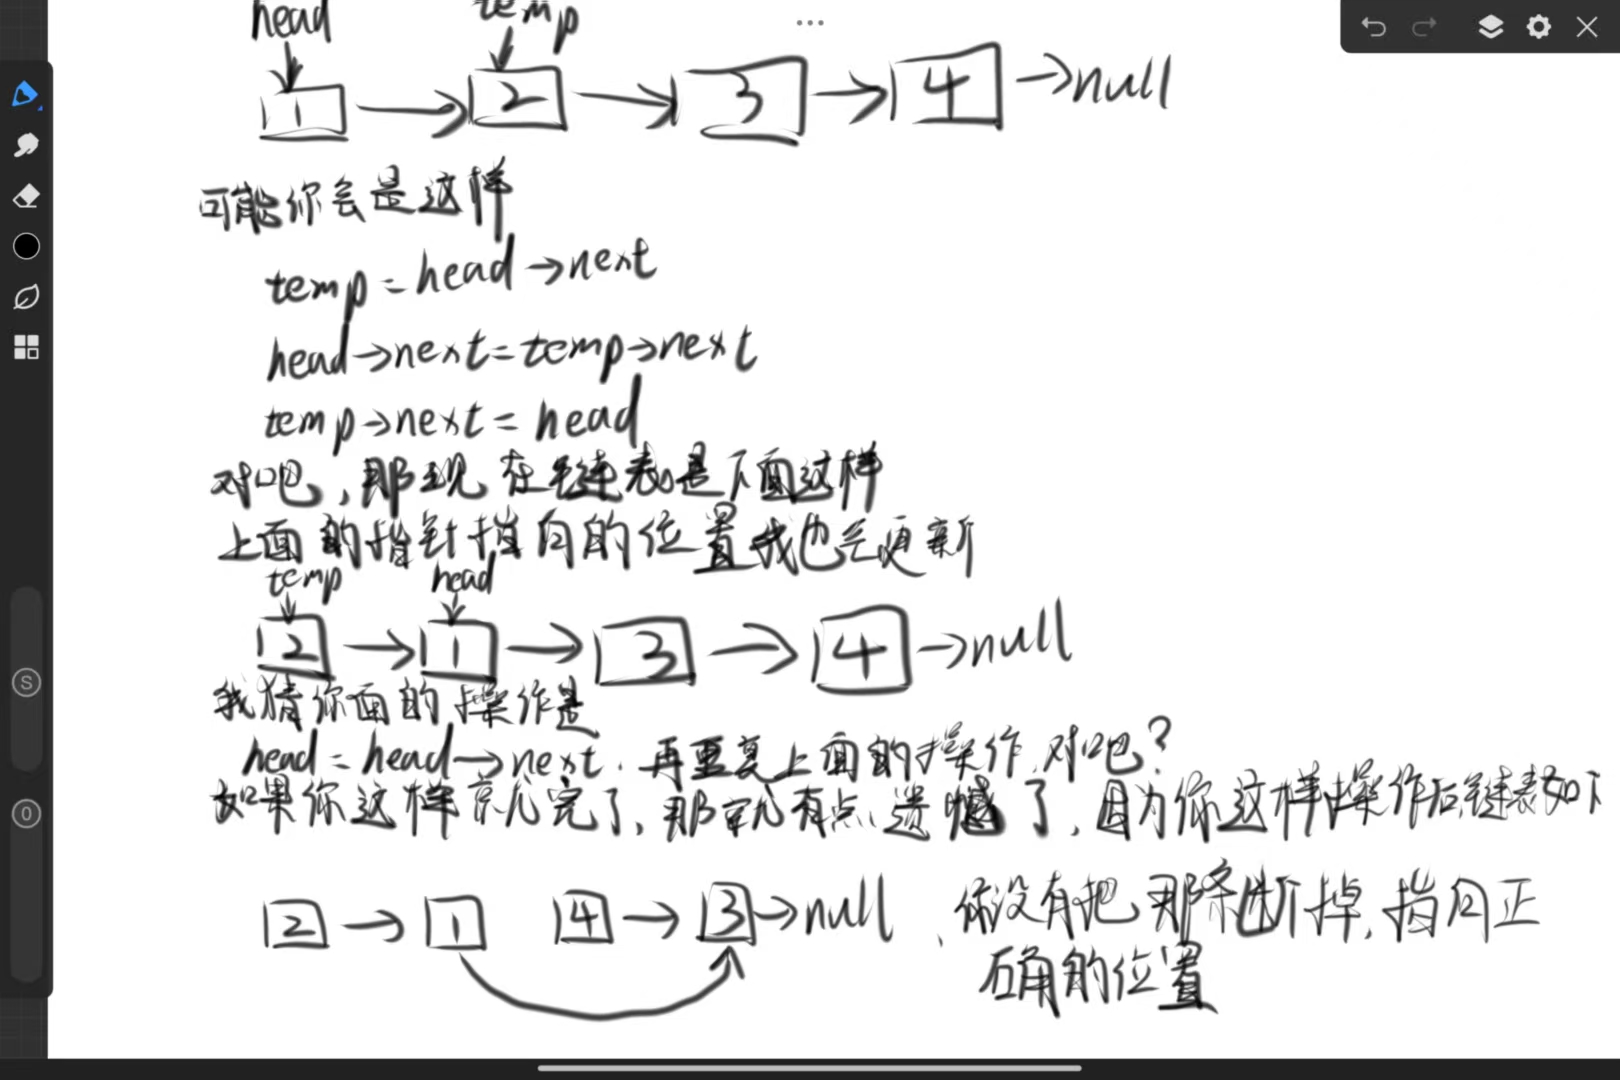 head temp
1 → 2 → 3 → 4 → null
可能你会是这样
temp = head → next
head → next = temp → next
temp → next = head
对吧，那现在链表是下面这样
上面的指针指向的位置我也会更新
temp head
2 → 1 → 3 → 4 → null
我猜你面的操作是
head = head → next. 再重复上面的操作, 对吧?
如果你这样就完了, 那就有点遗憾了, 因为你这样操作后链表如下
2 → 1 4 → 3 → null
你没有把那条断掉, 指向正
确的位置
S
O